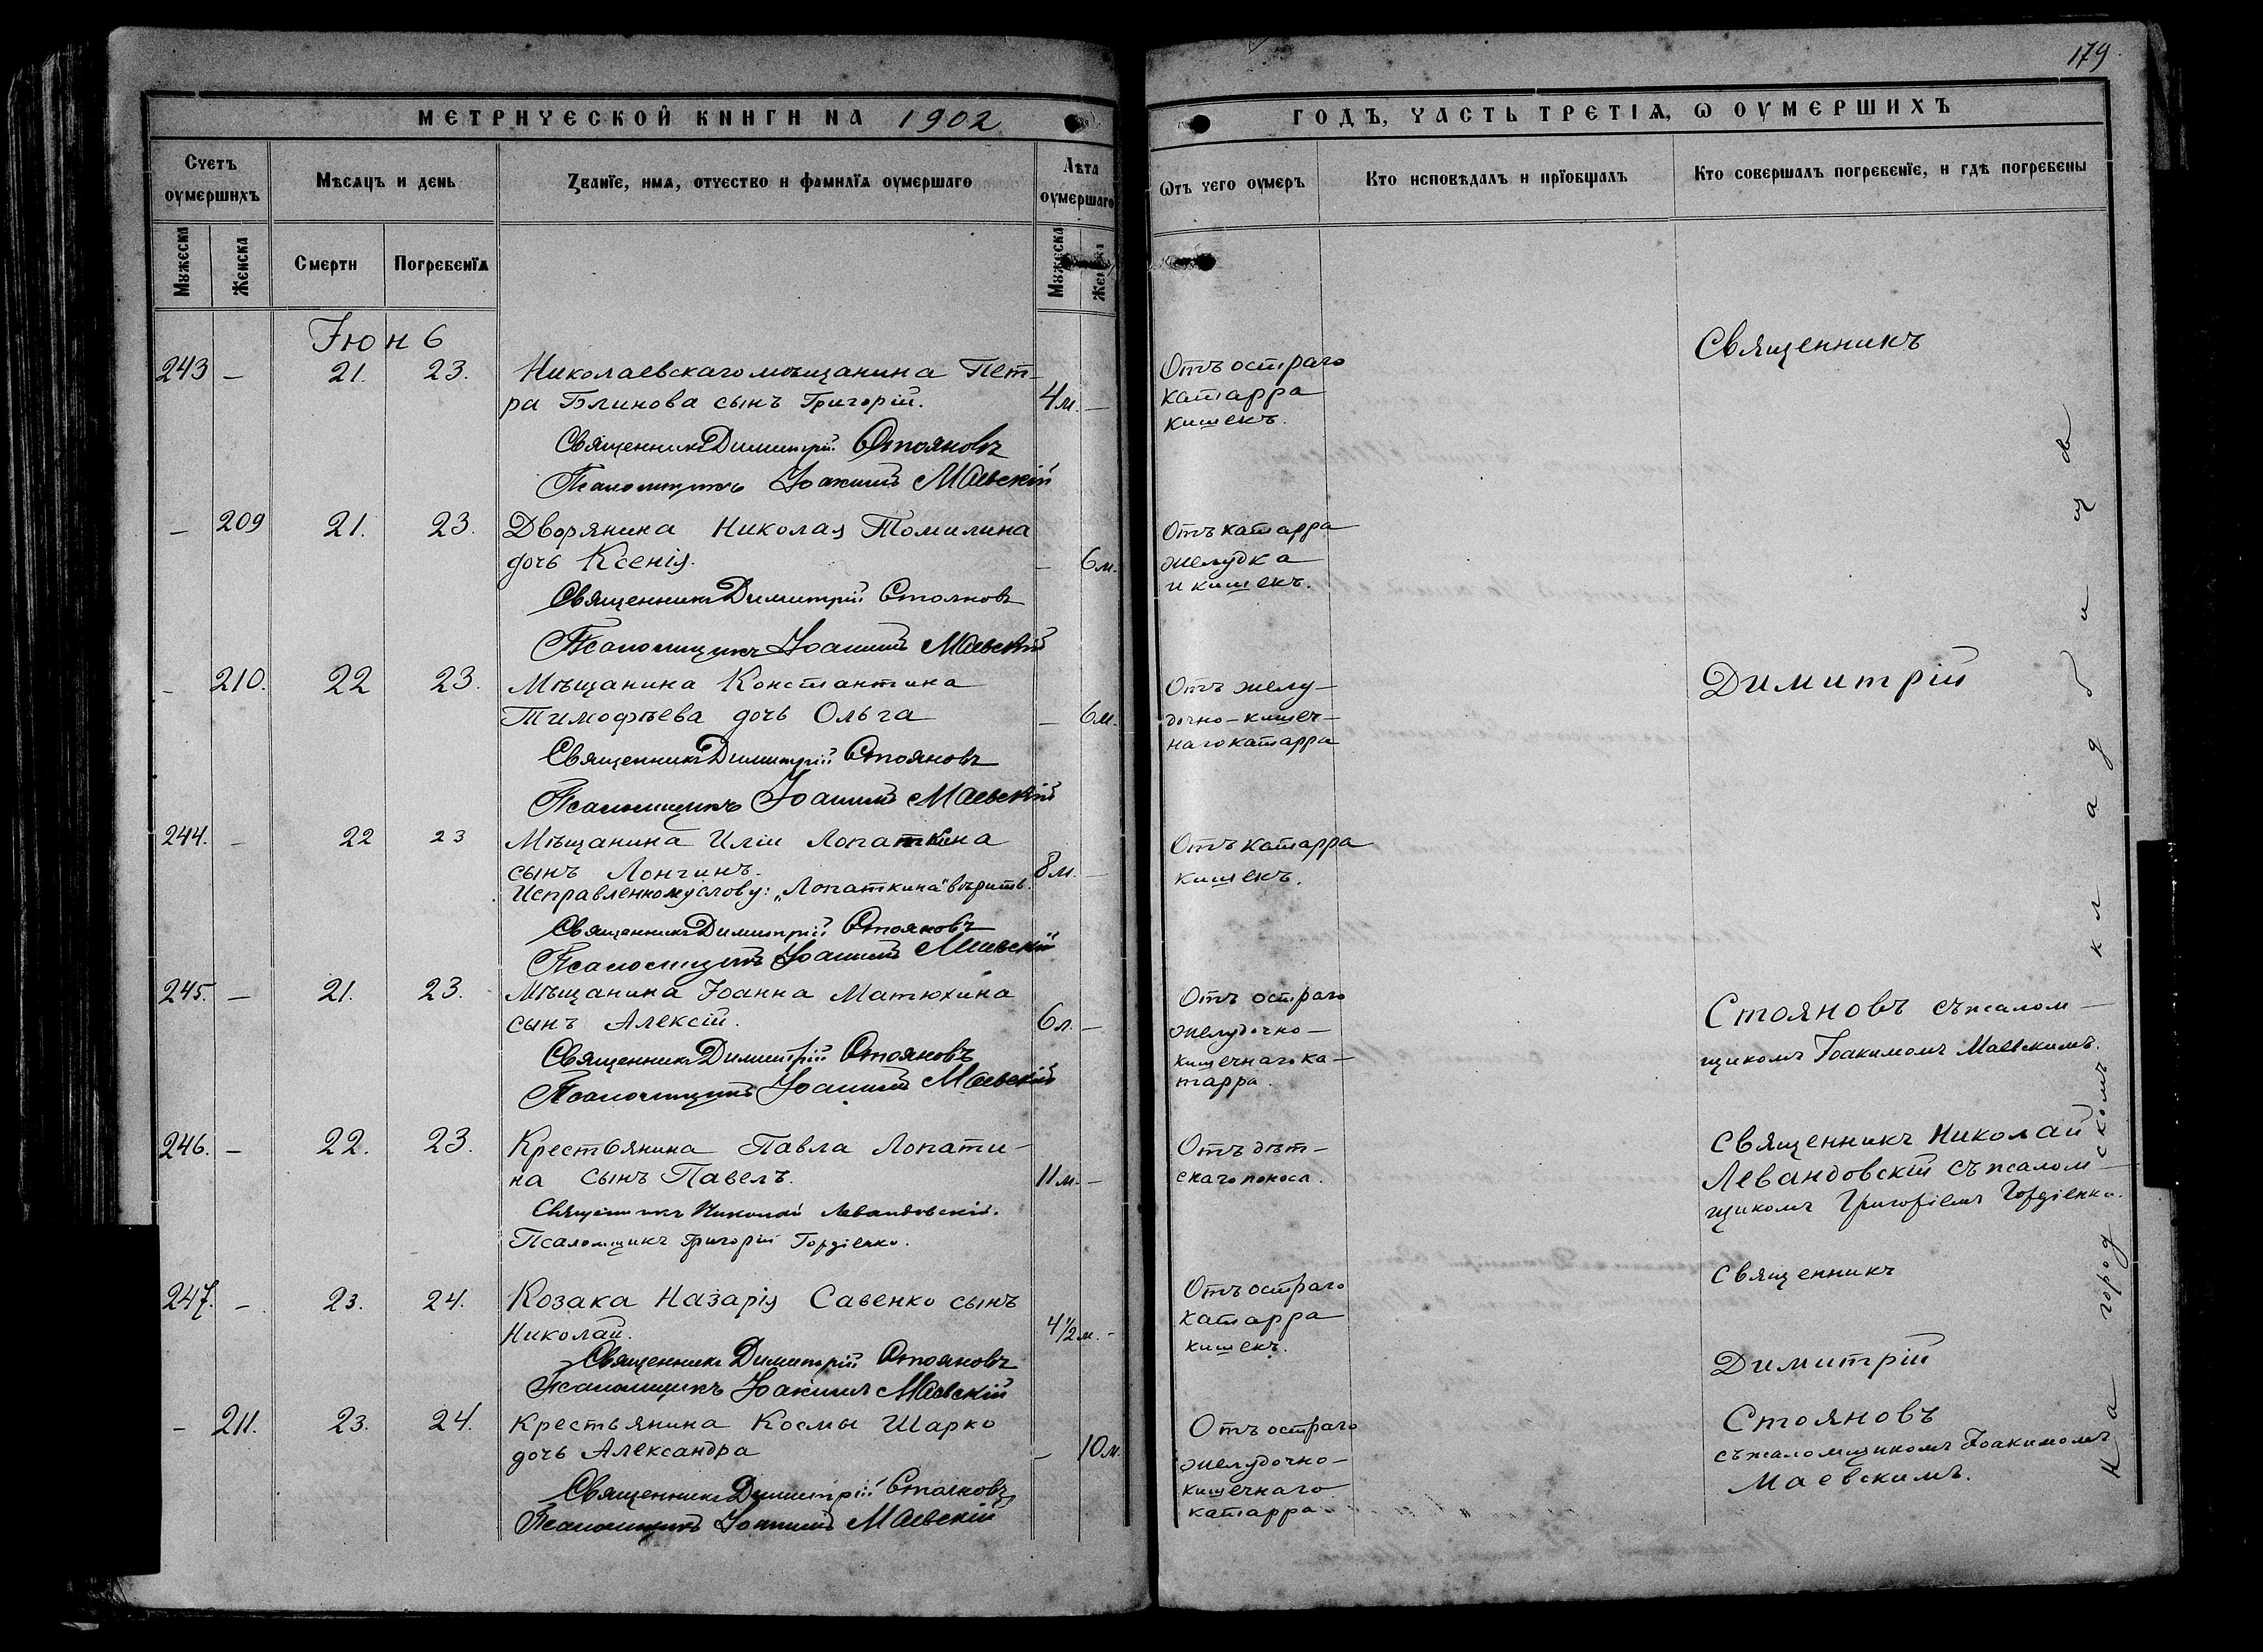 179
МЕТРИЧЕСКОЙ КНИГИ НА 1902
ГОДЪ, ЧАСТЬ ТРЕТІѦ, Ѡ ОУМЕРШИХЪ
Счетъ оумершихъ
Мѣсѧцъ и день
Званїе, имѧ, отчество и фамилїѧ оумершаго
Лѣта оумершаго
Ѿтъ чего оумеръ
Кто исповѣдалъ и прїобщалъ
Кто совершалъ погребенїе, и гдѣ погребены
Мужеска
Женска
Смерти
Погребенїѧ
Мужеска
Женска
Іюнь
243 – 21. 23. Николаевскаго мѣщанина Пет-
ра Блинова сынъ Григорій. 4м. –
Священникъ Димитрій Стояновъ
Псаломщикъ Іоакимъ Маевскій
Отъ остраго
катарра
кишекъ.
– 209 21. 23. Дворянина Николая Томилина
дочь Ксенія. – 6м.
Священникъ Димитрій Стояновъ
Псаломщикъ Іоакимъ Маевскій
Отъ катарра
желудка
и кишекъ.
– 210. 22 23. Мѣщанина Константина
Тимофѣева дочь Ольга – 6м.
Священникъ Димитрій Стояновъ
Псаломщикъ Іоакимъ Маевскій
Отъ желу-
дочно-кишеч-
наго катарра
244. – 22 23 Мѣщанина Иліи Лопаткина
сынъ Лонгинъ. 8м. –
Исправленному слову: „Лопаткина" вѣрить.
Священникъ Димитрій Стояновъ
Псаломщикъ Іоакимъ Маевскій
Отъ катарра
кишекъ.
245. – 21. 23. Мѣщанина Іоанна Матюхина
сынъ Алексій. 6л. –
Священникъ Димитрій Стояновъ
Псаломщикъ Іоакимъ Маевскій
Отъ остраго
желудочно-
кишечнаго ка-
тарра.
246. – 22. 23. Крестьянина Павла Лопати-
на сынъ Павелъ. 11м. –
Священникъ Николай Левандовскій.
Псаломщикъ Григорій Гордіенко.
Отъ дѣт-
скаго поноса.
247. – 23. 24. Козака Назарія Савенко сынъ
Николай. 4½м. –
Священникъ Димитрій Стояновъ
Псаломщикъ Іоакимъ Маевскій
Отъ остраго
катарра
кишекъ.
– 211. 23. 24. Крестьянина Космы Шарко
дочь Александра – 10м.
Священникъ Димитрій Стояновъ
Псаломщикъ Іоакимъ Маевскій
Отъ остраго
желудочно-
кишечнаго
катарра.
Священникъ
Димитрій
Стояновъ съ псалом-
щикомъ Іоакимомъ Маевскимъ.
Священникъ Николай
Левандовскій съ псалом-
щикомъ Григоріемъ Гордіенко.
Священникъ
Димитрій
Стояновъ
съ псаломщикомъ Іоакимомъ
Маевскимъ.
На городскомъ кладбищѣ